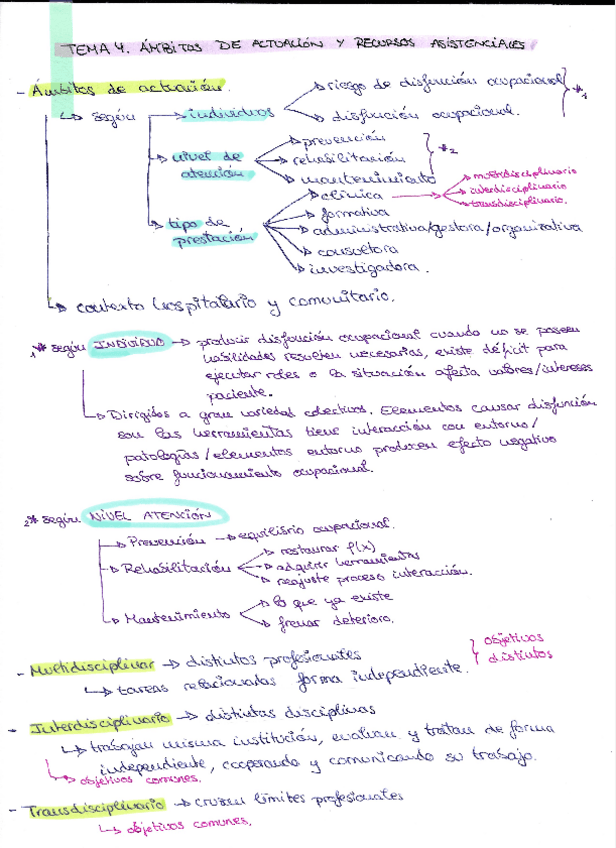 TEMA 4. ÁMBITOS DE ACTUACIÓN Y RECURSOS ASISTENCIALES
- Ámbitos de actuación.
↳ según
→ individuos
→ riesgo de disfunción ocupacional
→ disfunción ocupacional.
} *1
→ nivel de atención
→ prevención
→ rehabilitación
→ mantenimiento
} *2
→ tipo de prestación
→ clínica
→ multidisciplinario
→ interdisciplinario
→ transdisciplinario.
→ formativa
→ administrativa/gestora/organizativa
→ consultora
→ investigadora.
↳ contexto hospitalario y comunitario.
1* según INDIVIDUO → producir disfunción ocupacional cuando no se poseen
habilidades resulten necesarias, existe déficit para
ejecutar roles o la situación afecta valores/intereses
paciente.
↳ Dirigidos a gran variedad colectivos. Elementos causar disfunción
son las herramientas tiene interacción con entorno/
patologías/elementos entorno producen efecto negativo
sobre funcionamiento ocupacional.
2* según NIVEL ATENCIÓN
→ Prevención → equilibrio ocupacional.
→ Rehabilitación
→ restaurar f(x)
→ adquirir herramientas
→ reajuste proceso interacción.
→ Mantenimiento
→ lo que ya existe
→ frenar deterioro.
- Multidisciplinar → distintos profesionales
↳ tareas relacionadas forma independiente.
} objetivos
distintos
- Interdisciplinario → distintas disciplinas
↳ trabajan misma institución, evalúan y tratan de forma
independiente, cooperando y comunicando su trabajo.
↳ objetivos comunes.
- Transdisciplinario → cruzan límites profesionales
↳ objetivos comunes.